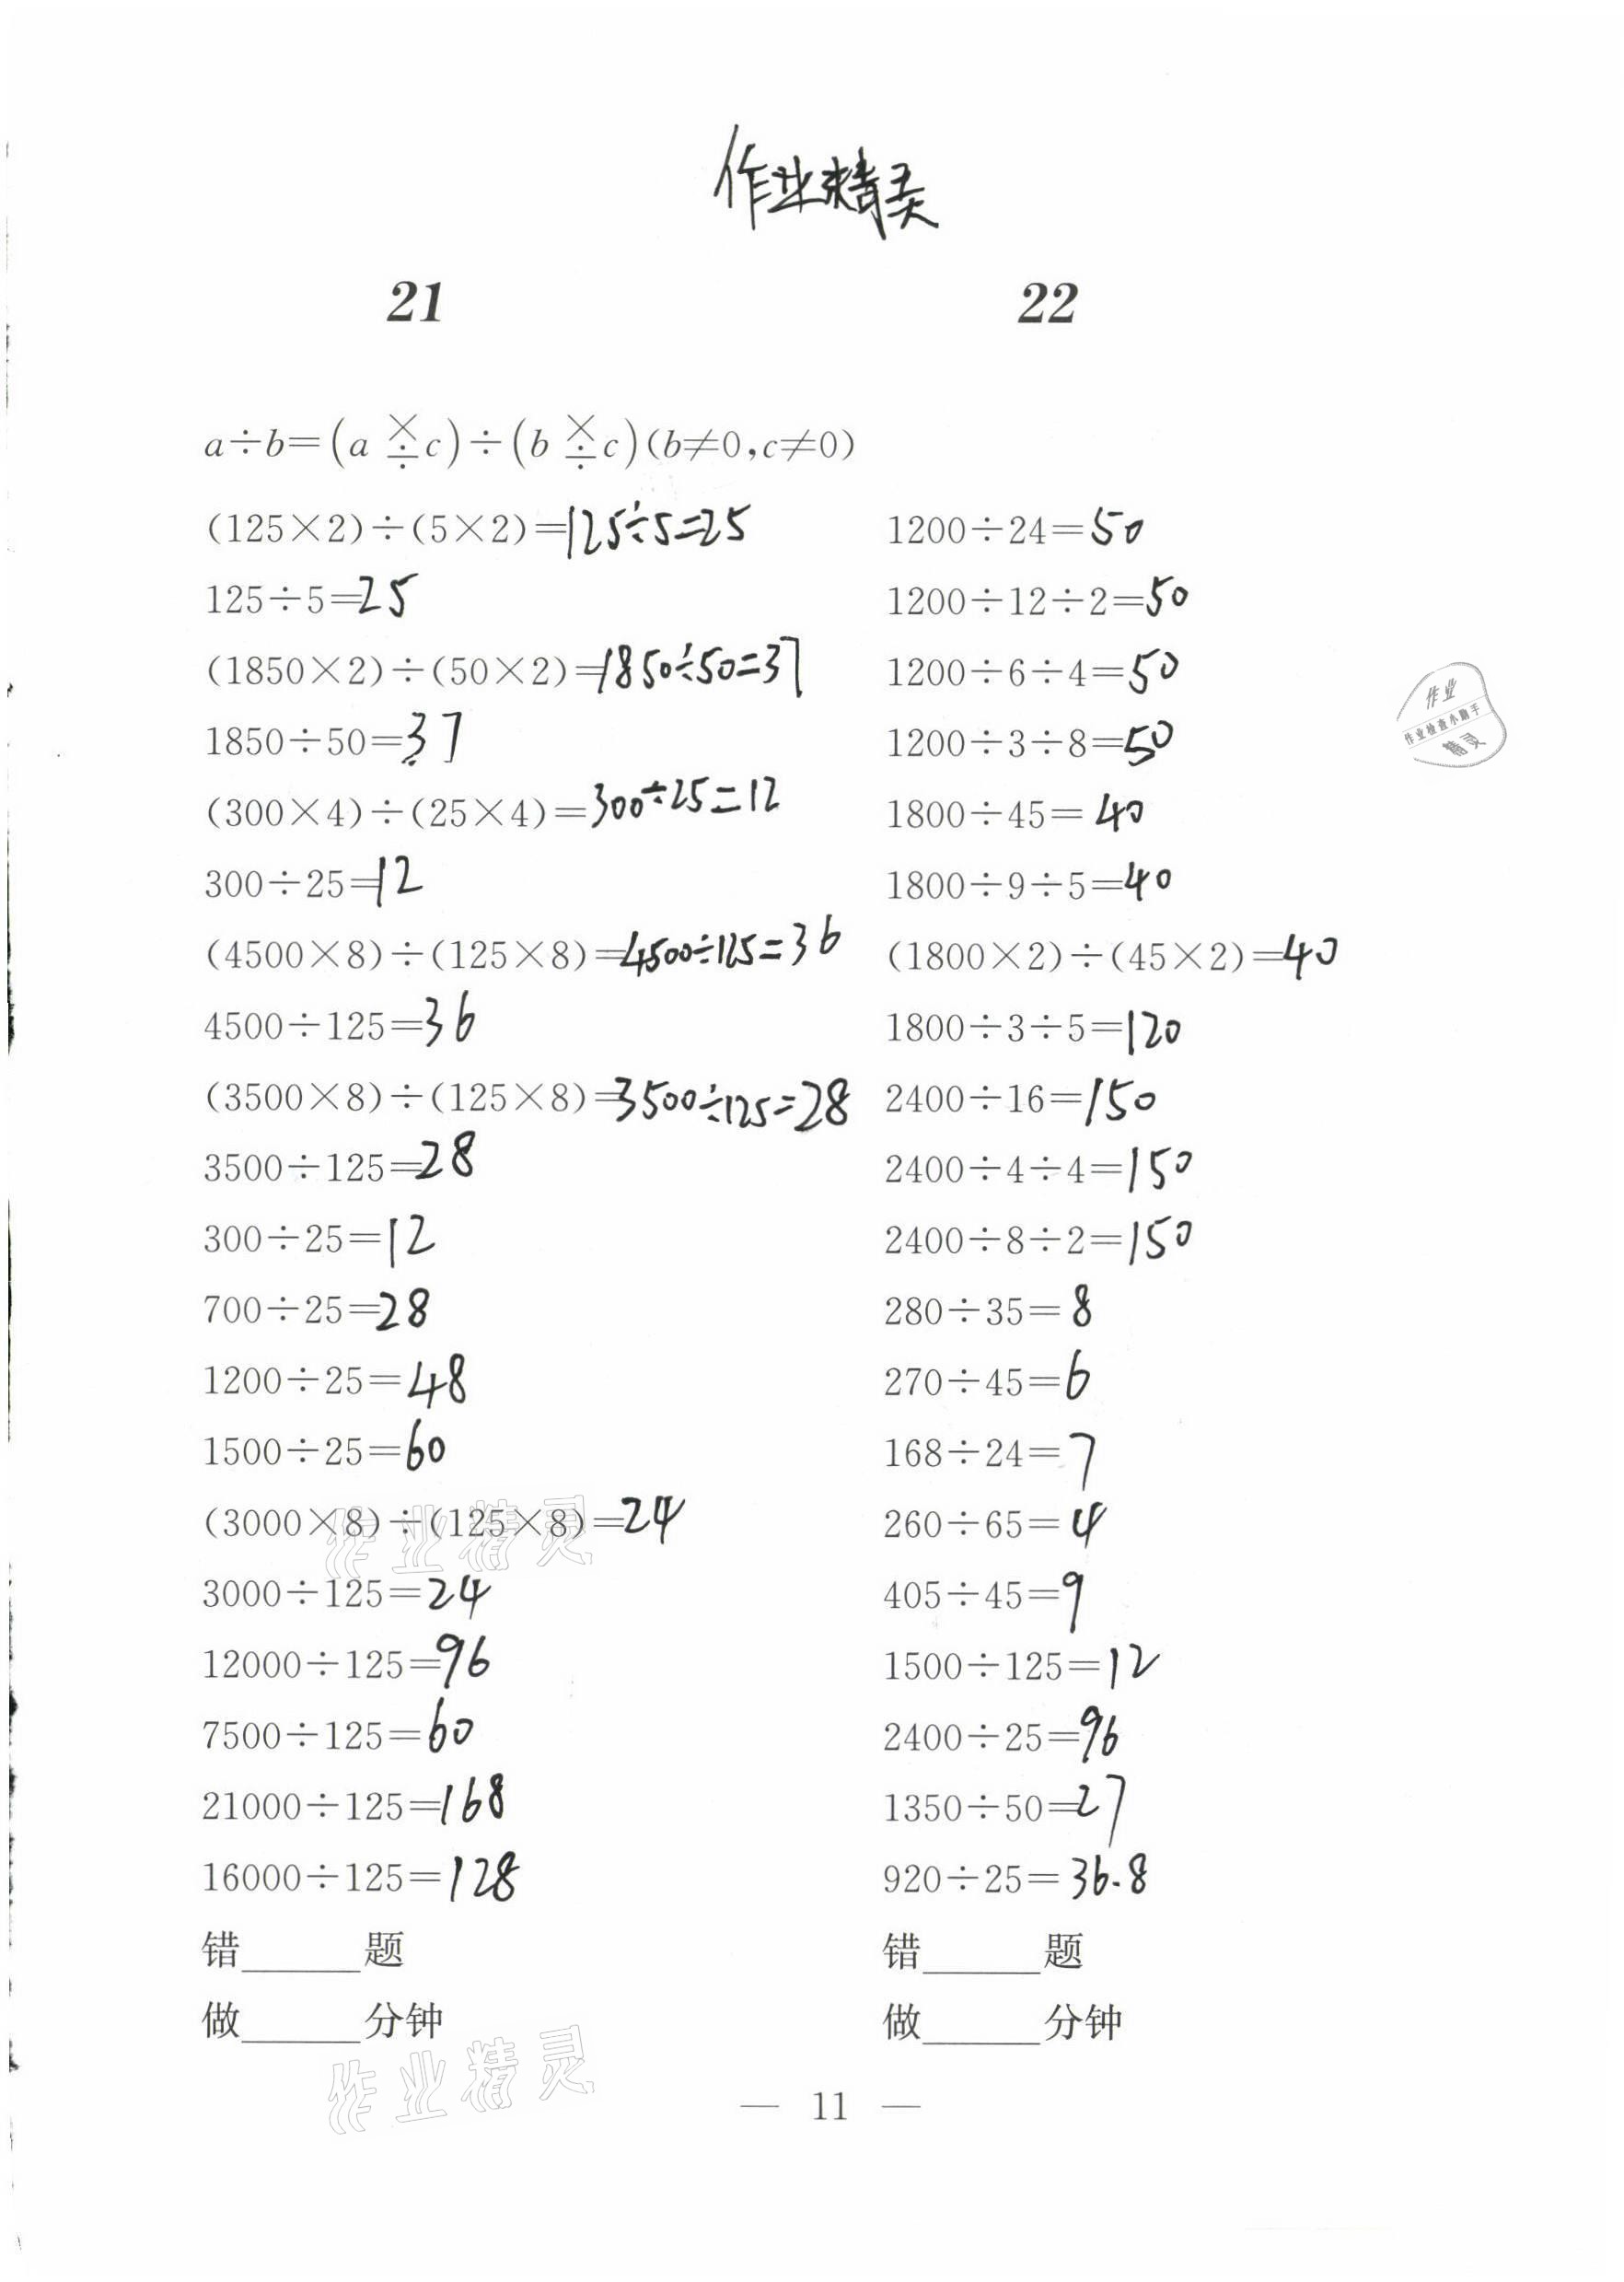 作业精灵
21
a÷b=(a ×÷ c)÷(b ×÷ c)(b≠0,c≠0)
(125×2)÷(5×2)=125÷5=25
125÷5=25
(1850×2)÷(50×2)=1850÷50=37
1850÷50=37
(300×4)÷(25×4)=300÷25=12
300÷25=12
(4500×8)÷(125×8)=4500÷125=36
4500÷125=36
(3500×8)÷(125×8)=3500÷125=28
3500÷125=28
300÷25=12
700÷25=28
1200÷25=48
1500÷25=60
(3000×8)÷(125×8)=24
3000÷125=24
12000÷125=96
7500÷125=60
21000÷125=168
16000÷125=128
错______题
做______分钟
22
1200÷24=50
1200÷12÷2=50
1200÷6÷4=50
1200÷3÷8=50
1800÷45=40
1800÷9÷5=40
(1800×2)÷(45×2)=40
1800÷3÷5=120
2400÷16=150
2400÷4÷4=150
2400÷8÷2=150
280÷35=8
270÷45=6
168÷24=7
260÷65=4
405÷45=9
1500÷125=12
2400÷25=96
1350÷50=27
920÷25=36.8
错______题
做______分钟
作业
作业检查小助手
精灵
作业精灵
作业精灵
— 11 —